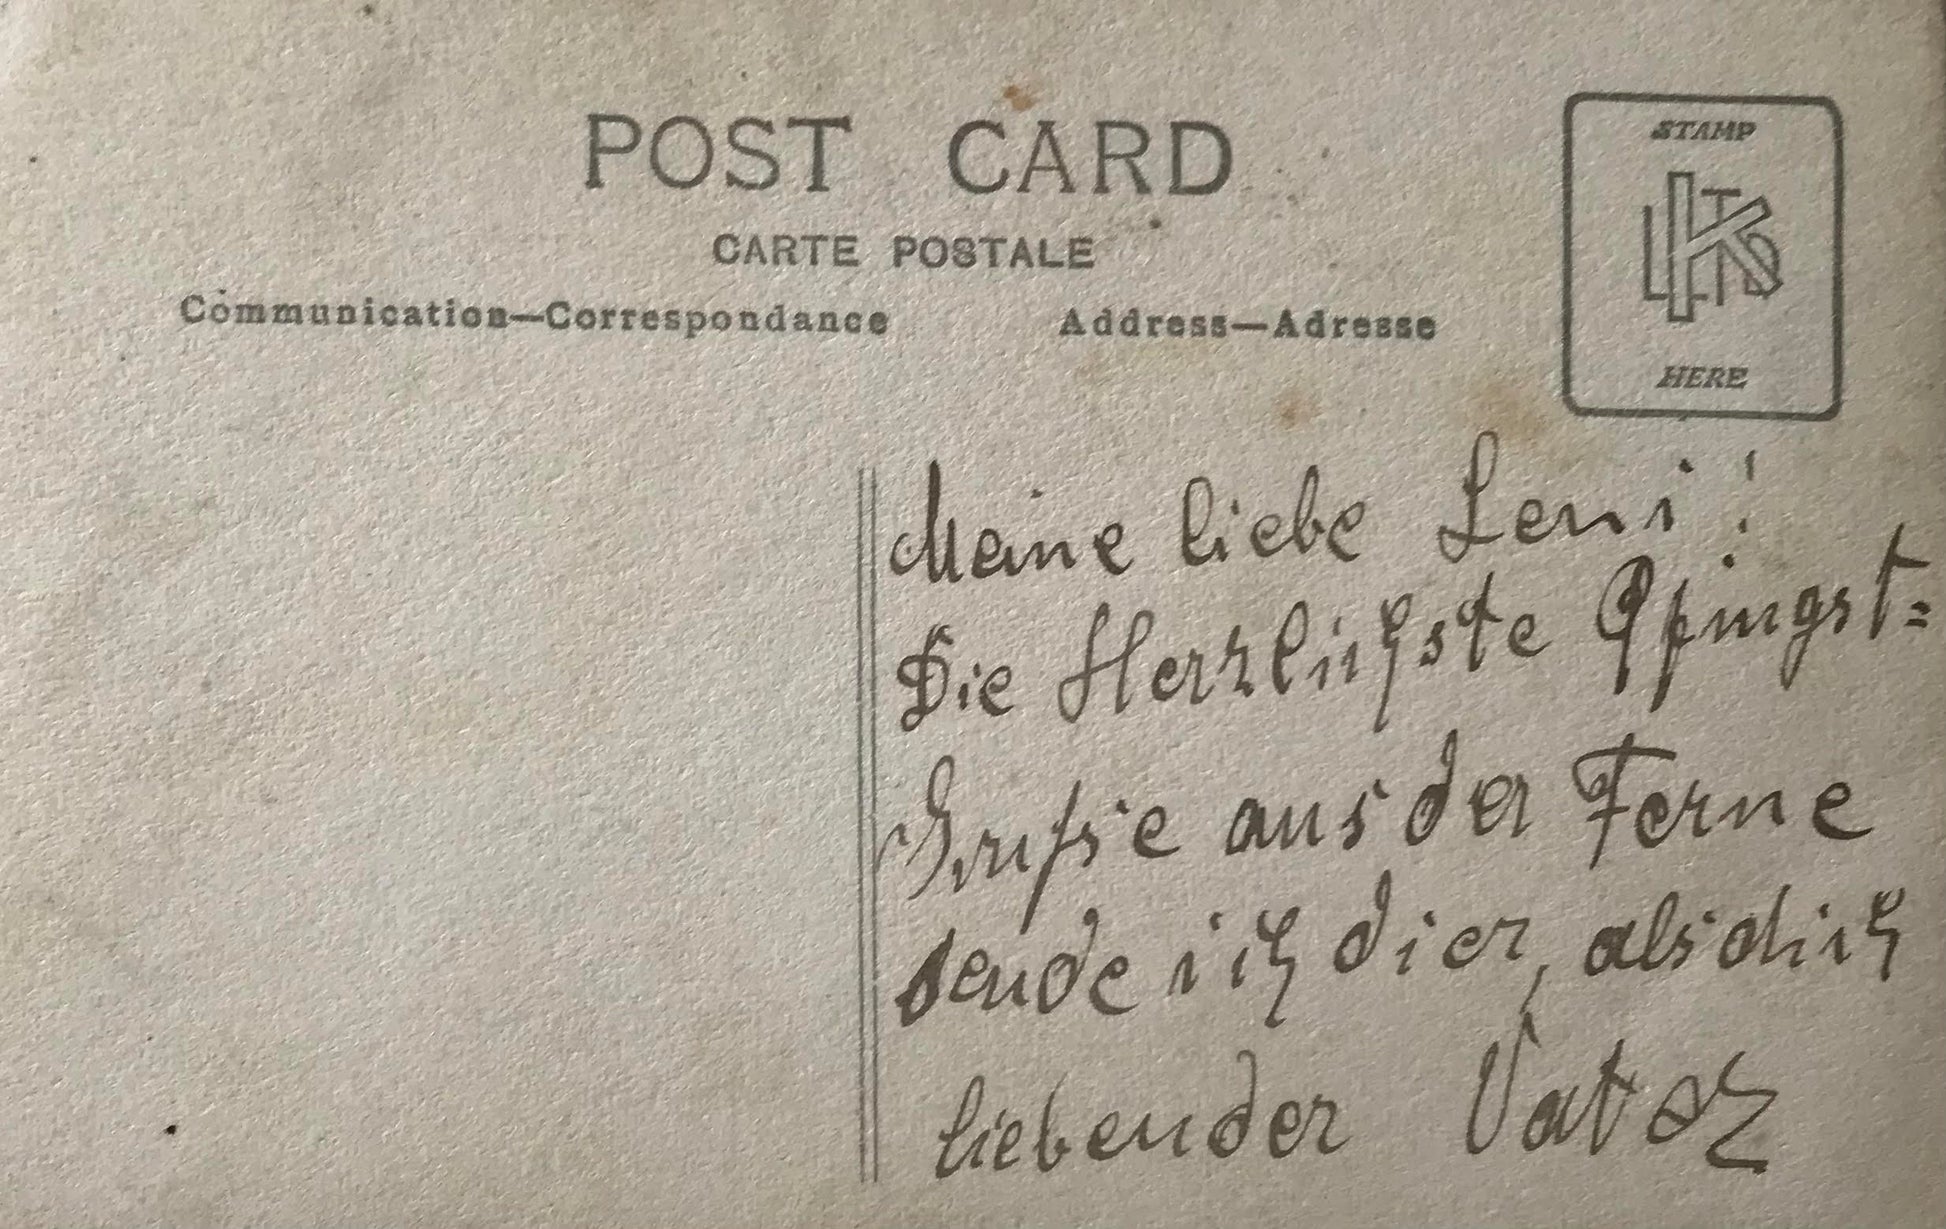 POST CARD
CARTE POSTALE
Communication—Correspondance
Address—Adresse
STAMP
HERE
Meine liebe Leni!
Die Herrlichste Pfingst=
Grüße aus der Ferne
sende ich dier, als dich
liebender Vater